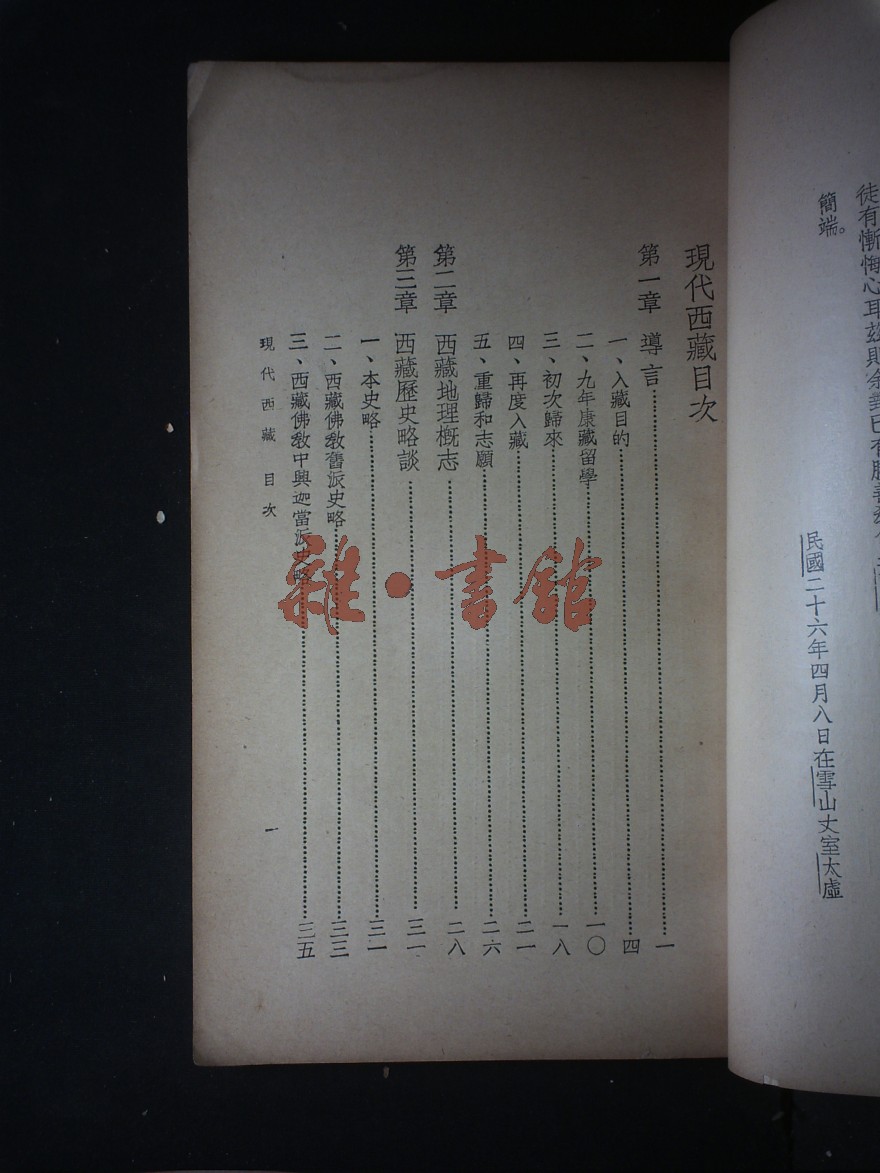 簡端。
民國二十六年四月八日在雪山丈室太虛
現代西藏目次
第一章 導言……一
一、入藏目的……四
二、九年康藏留學……一〇
三、初次歸來……一八
四、再度入藏……二一
五、重歸和志願……二六
第二章 西藏地理概志……二八
第三章 西藏歷史略談……三一
一、本史略……三一
二、西藏佛教舊派史略……三三
三、西藏佛教中興迦當派史略……三五
現代西藏 目次
一
雜·書館